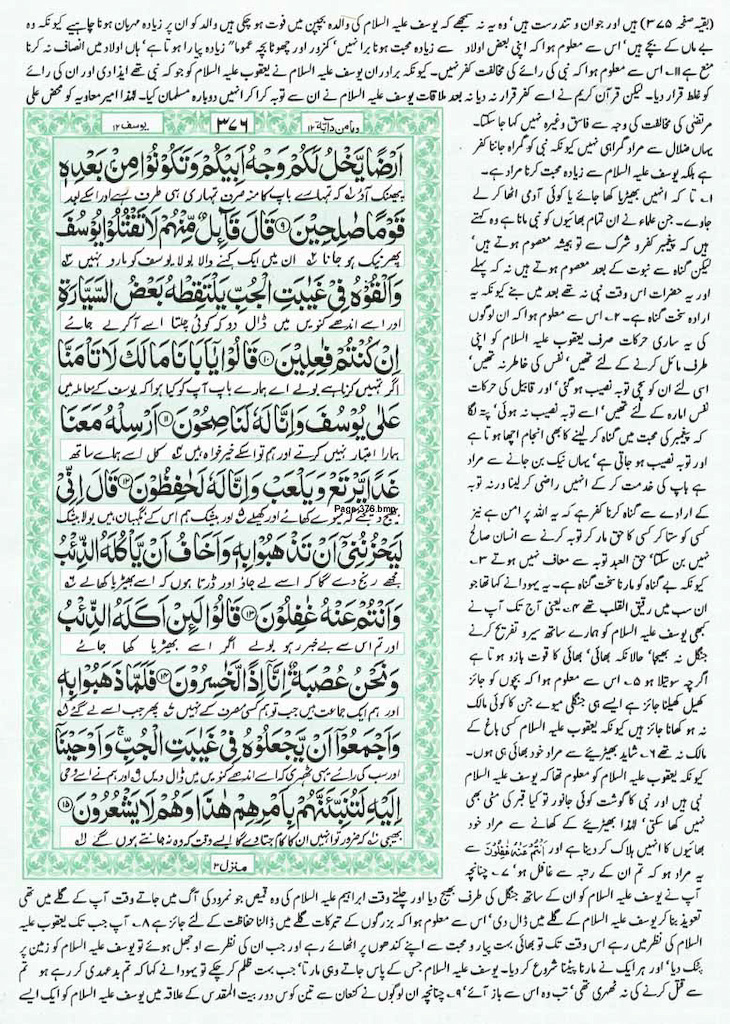 (بقیہ صفحہ ۳۷۵) ہیں اور جوان و تندرست ہیں' وہ یہ نہ سمجھے کہ یوسف علیہ السلام کی والدہ بچپن میں فوت ہو چکی ہیں والد کو ان پر زیادہ مہربان ہونا چاہیے کیونکہ وہ
بے ماں کے بچے ہیں' اس سے معلوم ہوا کہ اپنی بعض اولاد سے زیادہ محبت ہونا برا نہیں' کمزور اور چھوٹا بچہ عموما" زیادہ پیارا ہوتا ہے' ہاں اولاد میں انصاف نہ کرنا
منع ہے ۱۱۔ اس سے معلوم ہوا کہ نبی کی رائے کی مخالفت کفر نہیں۔ کیونکہ برادران یوسف علیہ السلام نے یعقوب علیہ السلام کو جو کہ نبی تھے ایذا دی اور ان کی رائے
کو غلط قرار دیا۔ لیکن قرآن کریم نے اسے کفر قرار نہ دیا نہ بعد ملاقات یوسف علیہ السلام نے ان سے توبہ کرا کر انہیں دوبارہ مسلمان کیا۔ لہذا امیر معاویہ کو محض علی
مرتضیٰ کی مخالفت کی وجہ سے فاسق وغیرہ نہیں کہا جا سکتا۔
یہاں ضلال سے مراد گمراہی نہیں کیونکہ نبی کو گمراہ جاننا کفر
ہے بلکہ یوسف علیہ السلام سے زیادہ محبت کرنا مراد ہے۔
۱۔ تا کہ انہیں بھیڑیا کھا جائے یا کوئی آدمی اٹھا کر لے
جاوے۔ جن علماء نے ان تمام بھائیوں کو نبی مانا ہے وہ کہتے
ہیں کہ پیغمبر کفر و شرک سے تو ہمیشہ معصوم ہوتے ہیں'
لیکن گناہ سے نبوت کے بعد معصوم ہوتے ہیں نہ کہ پہلے
اور یہ حضرات اس وقت نبی نہ تھے بعد میں بنے کیونکہ یہ
ارادہ سخت گناہ ہے۔ ۲۔ اس سے معلوم ہوا کہ ان لوگوں
کی یہ ساری حرکات صرف یعقوب علیہ السلام کو اپنی
طرف مائل کرنے کے لئے تھیں' نفس کی خاطر نہ تھیں'
اسی لئے ان کو سچی توبہ نصیب ہو گئی' اور قابیل کی حرکات
نفس امارہ کے لئے تھیں' اسے توبہ نصیب نہ ہوئی' پتہ لگا
کہ پیغمبر کی محبت میں گناہ کر لینے کا بھی انجام اچھا ہوتا ہے
اور توبہ نصیب ہو جاتی ہے' یہاں نیک بن جانے سے مراد
ہے باپ کی خدمت کر کے انہیں راضی کر لینا ورنہ توبہ
کے ارادے سے گناہ کرنا کفر ہے کہ یہ اللہ پر امن ہے نیز
کسی کو ستا کر کسی کا حق مار کر توبہ کرنے سے انسان صالح
نہیں بن سکتا' حق العبد توبہ سے معاف نہیں ہوتے ۳۔
کیونکہ بے گناہ کو مارنا سخت گناہ ہے۔ یہ یہودا نے کہا تھا جو
ان سب میں رقیق القلب تھے ۴۔ یعنی آج تک آپ نے
کبھی یوسف علیہ السلام کو ہمارے ساتھ سیر و تفریح کرنے
جنگل نہ بھیجا' حالانکہ بھائی' بھائی کا قوت بازو ہوتا ہے
اگرچہ سوتیلا ہو ۵۔ اس سے معلوم ہوا کہ بچوں کو جائز
کھیل کھیلنا جائز ہے ایسے ہی جنگلی میوے جن کا کوئی مالک
نہ ہو کھانا جائز ہیں کیونکہ یعقوب علیہ السلام کسی باغ کے
مالک نہ تھے ۶۔ شاید بھیڑیئے سے مراد خود بھائی ہی ہوں۔
کیونکہ یعقوب علیہ السلام کو معلوم تھا کہ یوسف علیہ السلام
نبی ہیں اور نبی کا گوشت کوئی جانور تو کیا قبر کی مٹی بھی
نہیں کھا سکتی' لہذا بھیڑیئے کے کھانے سے مراد خود
بھائیوں کا انہیں ہلاک کر دینا ہے اور اَنْتُمْ عَنْهُ غٰفِلُوْنَ سے
یہ مراد ہو کہ تم ان کے رتبہ سے غافل ہو' ۷۔ چنانچہ
وما من دآبة ۱۲ ۳۷۶ یوسف ۱۲
اَرْضًا يَّخْلُ لَكُمْ وَجْهُ اَبِيْكُمْ وَتَكُوْنُوْا مِنْۢ بَعْدِهٖ
پھینک آؤ لہ کہ تمہارے باپ کا منہ صرف تمہاری ہی طرف رہے اور اسکے بعد
قَوْمًا صٰلِحِيْنَ ۹ قَالَ قَآئِلٌ مِّنْهُمْ لَا تَقْتُلُوْا يُوْسُفَ
پھر نیک ہو جانا ان میں ایک کہنے والا بولا یوسف کو مارو نہیں
وَاَلْقُوْهُ فِيْ غَيٰبَتِ الْجُبِّ يَلْتَقِطْهُ بَعْضُ السَّيَّارَةِ
اور اسے اندھے کنویں میں ڈال دو کہ کوئی چلتا اسے آ کر لے جائے
اِنْ كُنْتُمْ فٰعِلِيْنَ ۱۰ قَالُوْا يٰٓاَبَانَا مَا لَكَ لَا تَاْمَنَّا
اگر تمہیں کرنا ہے بولے اے ہمارے باپ آپ کو کیا ہوا کہ یوسف کے معاملہ میں
عَلٰى يُوْسُفَ وَاِنَّا لَهٗ لَنٰصِحُوْنَ ۱۱ اَرْسِلْهُ مَعَنَا
ہمارا اعتبار نہیں کرتے اور ہم تو اسکے خیر خواہ ہیں کل اسے ہمارے ساتھ
غَدًا يَّرْتَعْ وَيَلْعَبْ وَاِنَّا لَهٗ لَحٰفِظُوْنَ ۱۲ قَالَ اِنِّيْ
بھیج دیجئے کہ میوے کھائے اور کھیلے اور بیشک ہم اس کے نگہبان ہیں بولا بیشک
Page 376.bmp
لَيَحْزُنُنِيْٓ اَنْ تَذْهَبُوْا بِهٖ وَاَخَافُ اَنْ يَّاْكُلَهُ الذِّئْبُ
مجھے رنج دے گا کہ اسے لے جاؤ اور ڈرتا ہوں کہ اسے بھیڑیا کھا لے
وَاَنْتُمْ عَنْهُ غٰفِلُوْنَ ۱۳ قَالُوْا لَئِنْ اَكَلَهُ الذِّئْبُ
اور تم اس سے بے خبر رہو بولے اگر اسے بھیڑیا کھا جائے
وَنَحْنُ عُصْبَةٌ اِنَّآ اِذًا لَّخٰسِرُوْنَ ۱۴ فَلَمَّا ذَهَبُوْا بِهٖ
اور ہم ایک جماعت ہیں جب تو ہم کسی مصرف کے نہیں پھر جب اسے لے گئے
وَاَجْمَعُوْٓا اَنْ يَّجْعَلُوْهُ فِيْ غَيٰبَتِ الْجُبِّ ۚ وَاَوْحَيْنَآ
اور سب کی رائے یہی ٹھہری کہ اسے اندھے کنویں میں ڈال دیں اور ہم نے اسے وحی
اِلَيْهِ لَتُنَبِّئَنَّهُمْ بِاَمْرِهِمْ هٰذَا وَهُمْ لَا يَشْعُرُوْنَ ۱۵
بھیجی کہ ضرور تو انہیں ان کا کام جتا دے گا ایسے وقت کہ وہ نہ جانتے ہوں گے
منزل ۳
آپ نے یوسف علیہ السلام کو ان کے ساتھ جنگل کی طرف بھیج دیا اور چلتے وقت ابراہیم علیہ السلام کی وہ قمیص جو نمرود کی آگ میں جاتے وقت آپ کے گلے میں تھی
تعویذ بنا کر یوسف علیہ السلام کے گلے میں ڈال دی' اس سے معلوم ہوا کہ بزرگوں کے تبرکات گلے میں ڈالنا حفاظت کے لئے جائز ہے ۸۔ آپ جب تک یعقوب علیہ
السلام کی نظر میں رہے اس وقت تک تو بھائی بہت پیار و محبت سے اپنے کندھوں پر اٹھائے رہے اور جب ان کی نظر سے اوجھل ہوئے تو یوسف علیہ السلام کو زمین پر
پٹک دیا' اور ہر ایک نے مارنا پیٹنا شروع کر دیا۔ یوسف علیہ السلام جس کے پاس جاتے وہی مارتا' جب بہت ظلم کر چکے تو یہودا نے کہا کہ تم بدعہدی کر رہے ہو تم
سے قتل کرنے کی نہ ٹھہری تھی' تب وہ اس سے باز آئے' ۹۔ چنانچہ ان لوگوں نے کنعان سے تین کوس دور بیت المقدس کے علاقہ میں یوسف علیہ السلام کو ایک ایسے